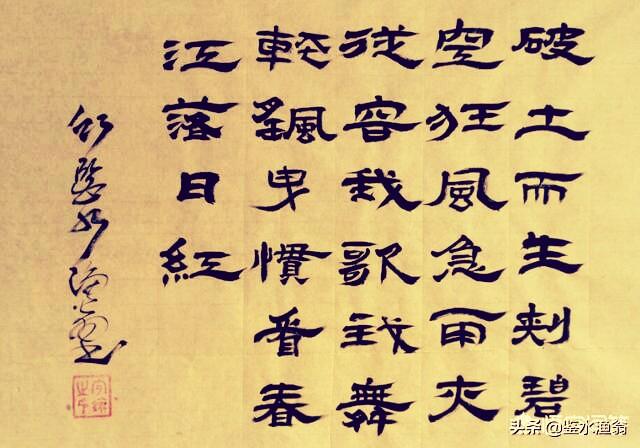 破土而生刺碧
空狂風急雨亦
從容我歌我舞
輕飄曳慣看春
江落日紅
竹鑒水漁翁
头条 @鉴水渔翁